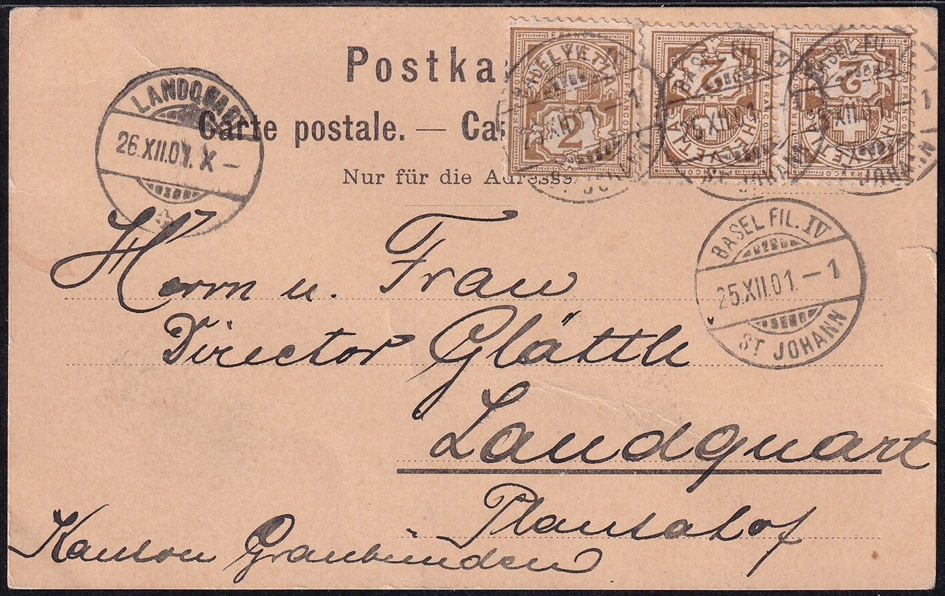 Postka
Carte postale. — Ca
Nur für die Adresse
HELVETIA
2
FRANCO
HELVETIA
2
FRANCO
HELVETIA
2
FRANCO
LANDQUART
26.XII.01. X –
BASEL FIL. IV
25.XII.01. – 1
ST JOHANN
Herrn u. Frau
Director Glättli
Landquart
Plantahof
Kanton Graubünden